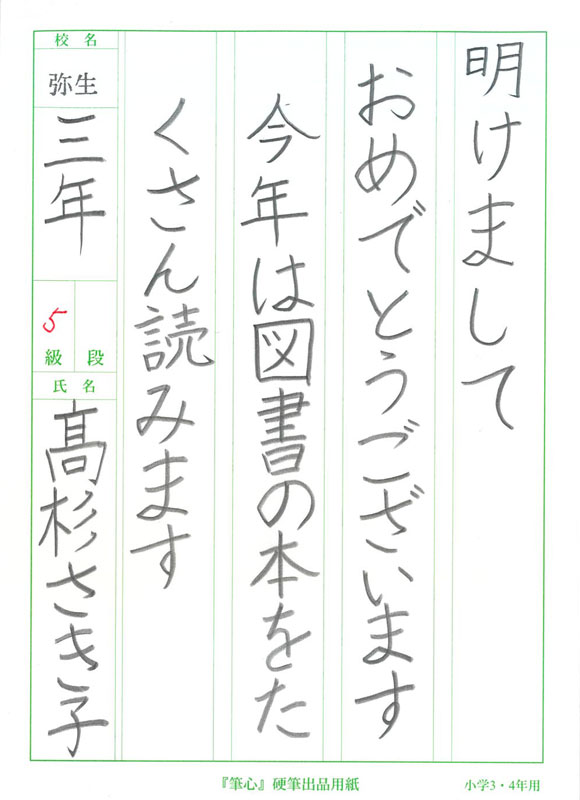 明けまして
おめでとうございます
今年は図書の本をた
くさん読みます
校名
弥生
三年
5
級 段
氏名
髙杉さき子
『筆心』硬筆出品用紙
小学3・4年用